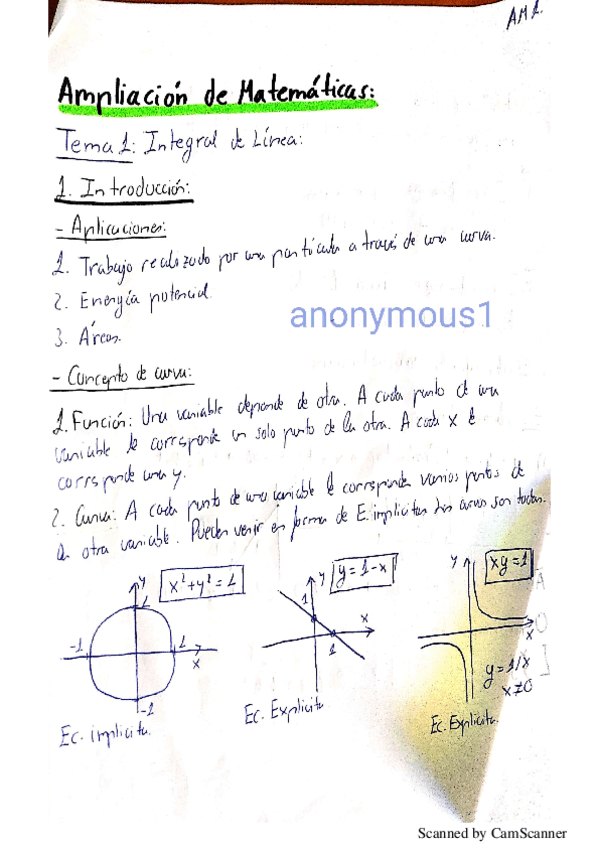 AM1.
Ampliación de Matemáticas:
Tema 1: Integral de Línea:
1. Introducción:
- Aplicaciones:
1. Trabajo realizado por una partícula a través de una curva.
2. Energía potencial.
anonymous1
3. Áreas.
- Concepto de curva:
1. Función: Una variable depende de otra. A cada punto de una
variable le corresponde un solo punto de la otra. A cada x le
corresponde una y.
2. Curva: A cada punto de una variable le corresponden varios puntos de
la otra variable. Pueden venir en forma de E. implícitas curvas son todas.
y x²+y²=1
1
-1 1 x
-1
Ec. implícita.
y y=1-x
1
x
1
Ec. Explícita
y xy=1
x
y=1/x
x≠0
Ec. Explícita.
Scanned by CamScanner